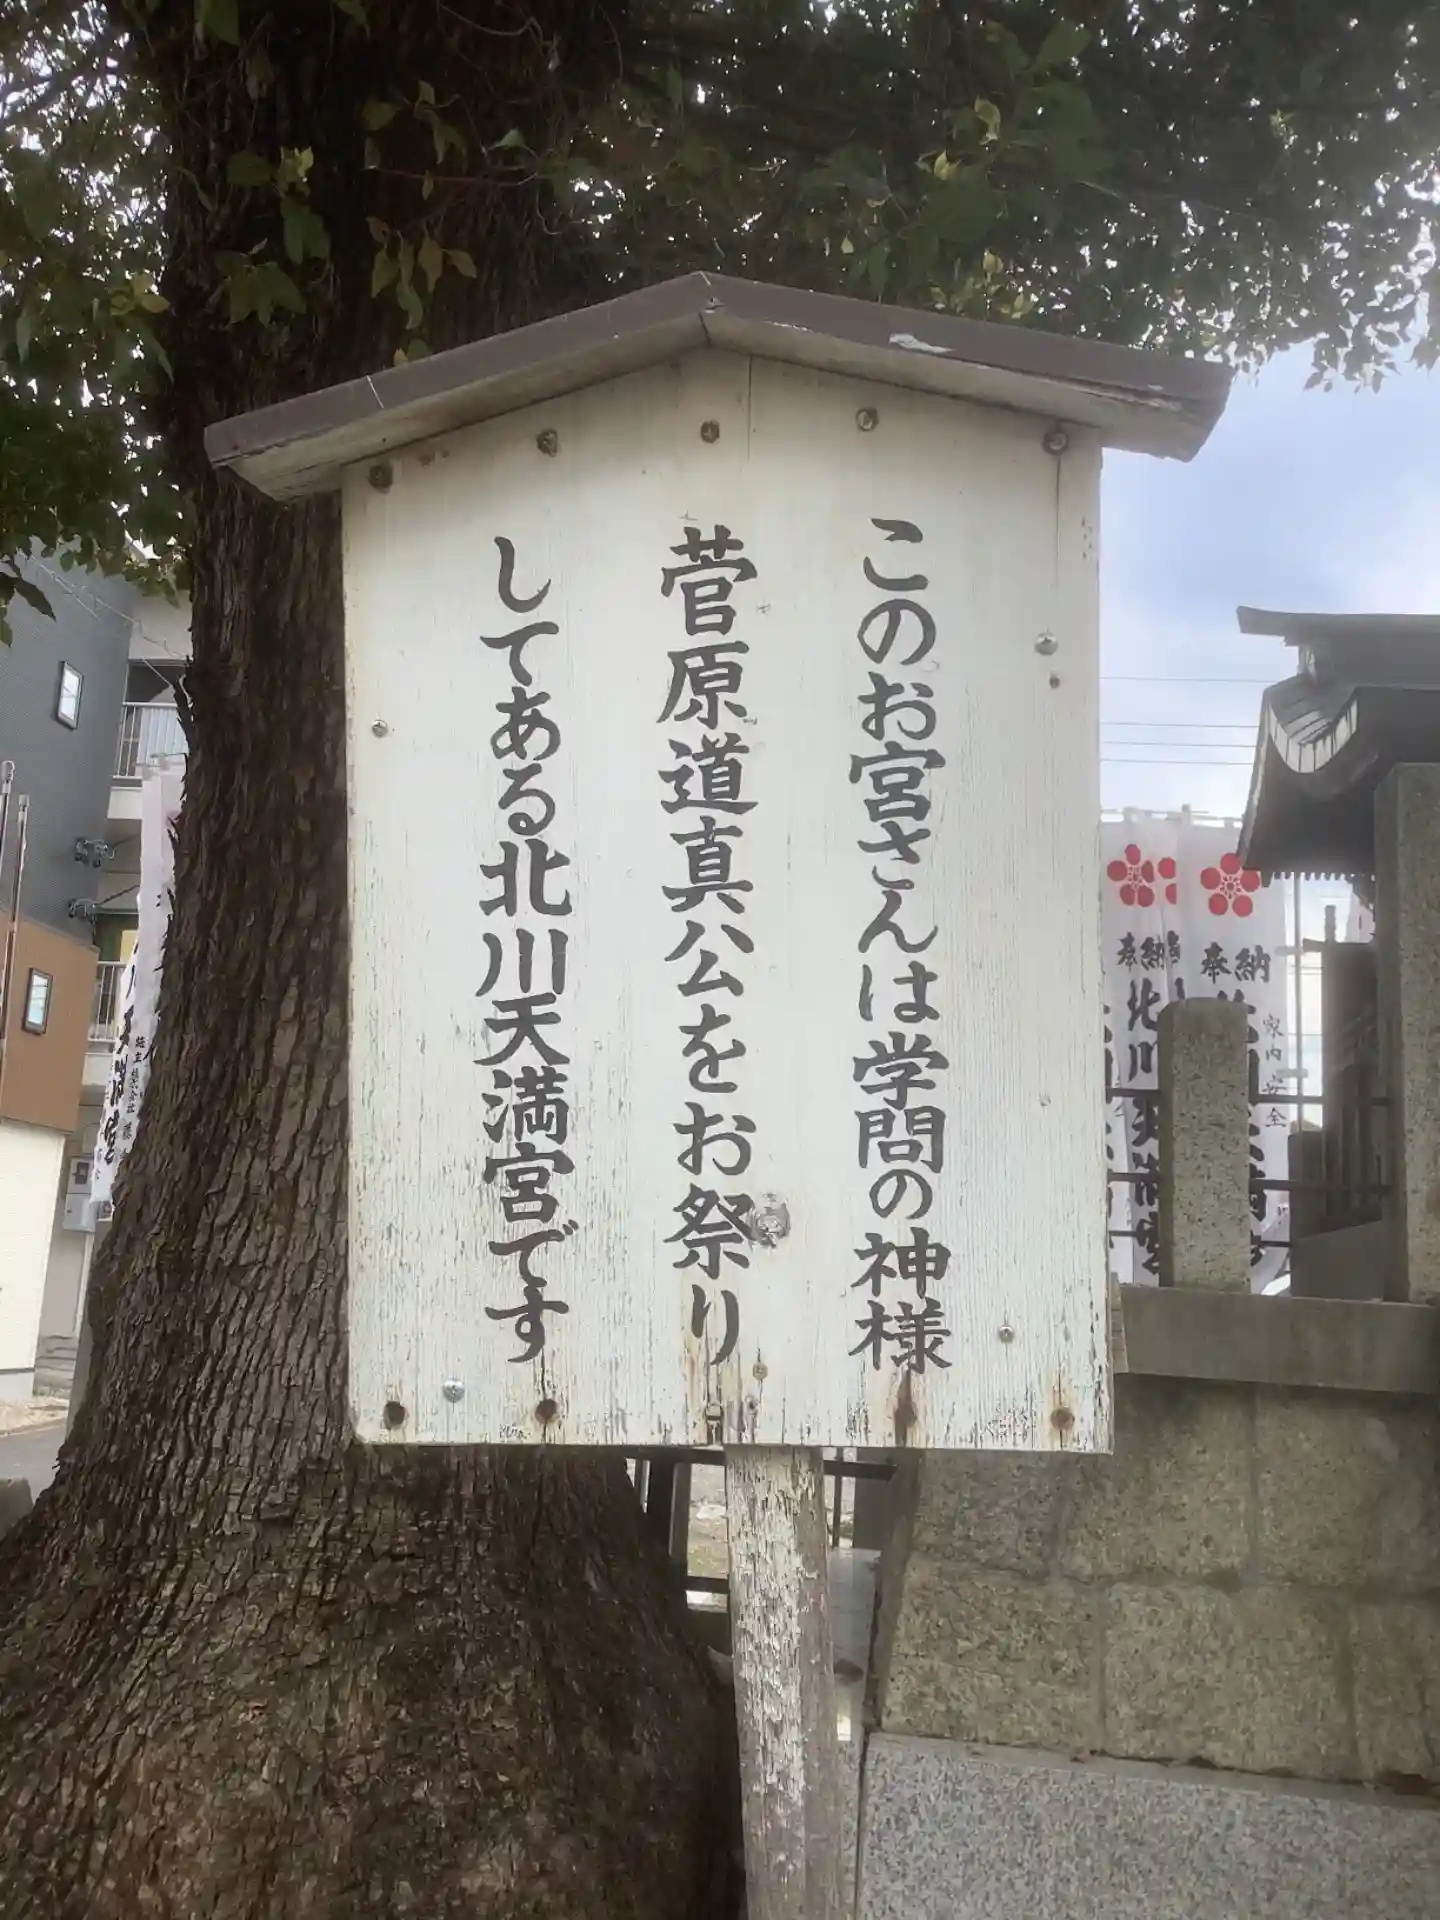 このお宮さんは学問の神様
菅原道真公をお祭り
してある北川天満宮です
奉納
北川天満宮
奉納
家内安全
施主 株式会社